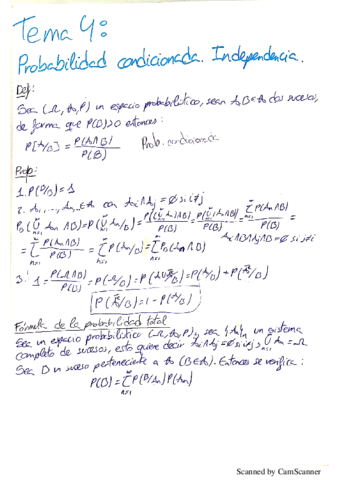 Tema 4:
Probabilidad condicionada. Independencia.
Def:
Sea (Ω, A, P) un espacio probabilístico, sean A, B ∈ A dos sucesos,
de forma que P(B)>0 entonces:
P[A/B] = P(A∩B) / P(B)   Prob. condicionada
Prop:
1. P(Ω/B) = 1
2. A₁, ..., Aₙ, ∈ A con Aᵢ∩Aⱼ = ∅ si i≠j
3. 1 = P(Ω∩B) / P(B) = P(Ω/B) = P(A∪Ā/B) = P(A/B) + P(Ā/B)
P(Ā/B) = 1 - P(A/B)
Fórmula de la probabilidad total
Sea un espacio probabilístico (Ω, A, P), sea {Aₙ}ₙ un sistema
completo de sucesos, esto quiere decir Aᵢ∩Aⱼ = ∅ si i≠j, ∪ Aₙ = Ω
Sea B un suceso perteneciente a A (B∈A). Entonces se verifica:
P(B) = Σ P(B/Aₙ) P(Aₙ)
Scanned by CamScanner